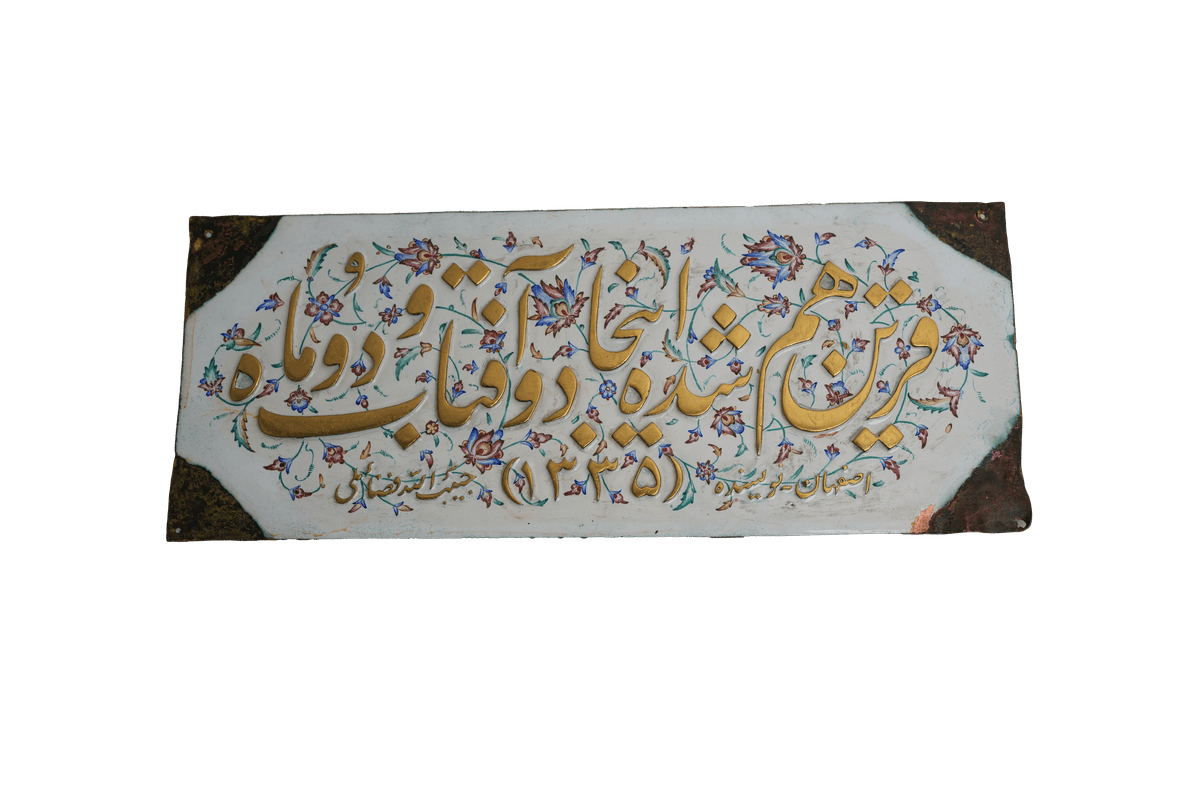 قرین هم شده اینجا دو آفتاب و دو ماه
اصفهان - نویسنده (۱۳۳۵) حبیب الله فضائلی